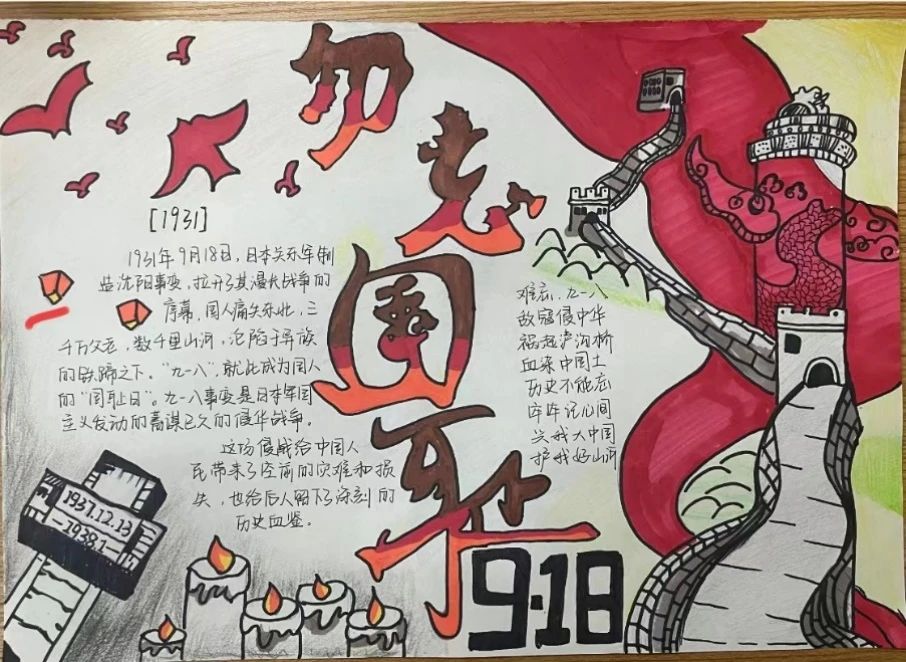 勿
忘
国
耻
9·18
[1931]
1931年9月18日,日本关东军制
造沈阳事变,拉开了其漫长战争的
序幕,国人痛失东北,三
千万父老,数千里山河,沦陷于异族
的铁蹄之下。“九一八”,就此成为国人
的“国耻日”。九一八事变是日本军国
主义发动的蓄谋已久的侵华战争。
这场侵略给中国人
民带来了空前的灾难和损
失,也给后人留下了深刻的
历史血鉴。
难忘,九一八
敌寇侵中华
祸起泸沟桥
血染中国土
历史不能忘
牢牢记心间
兴我大中国
护我好山河
1937.12.13
-1938.1